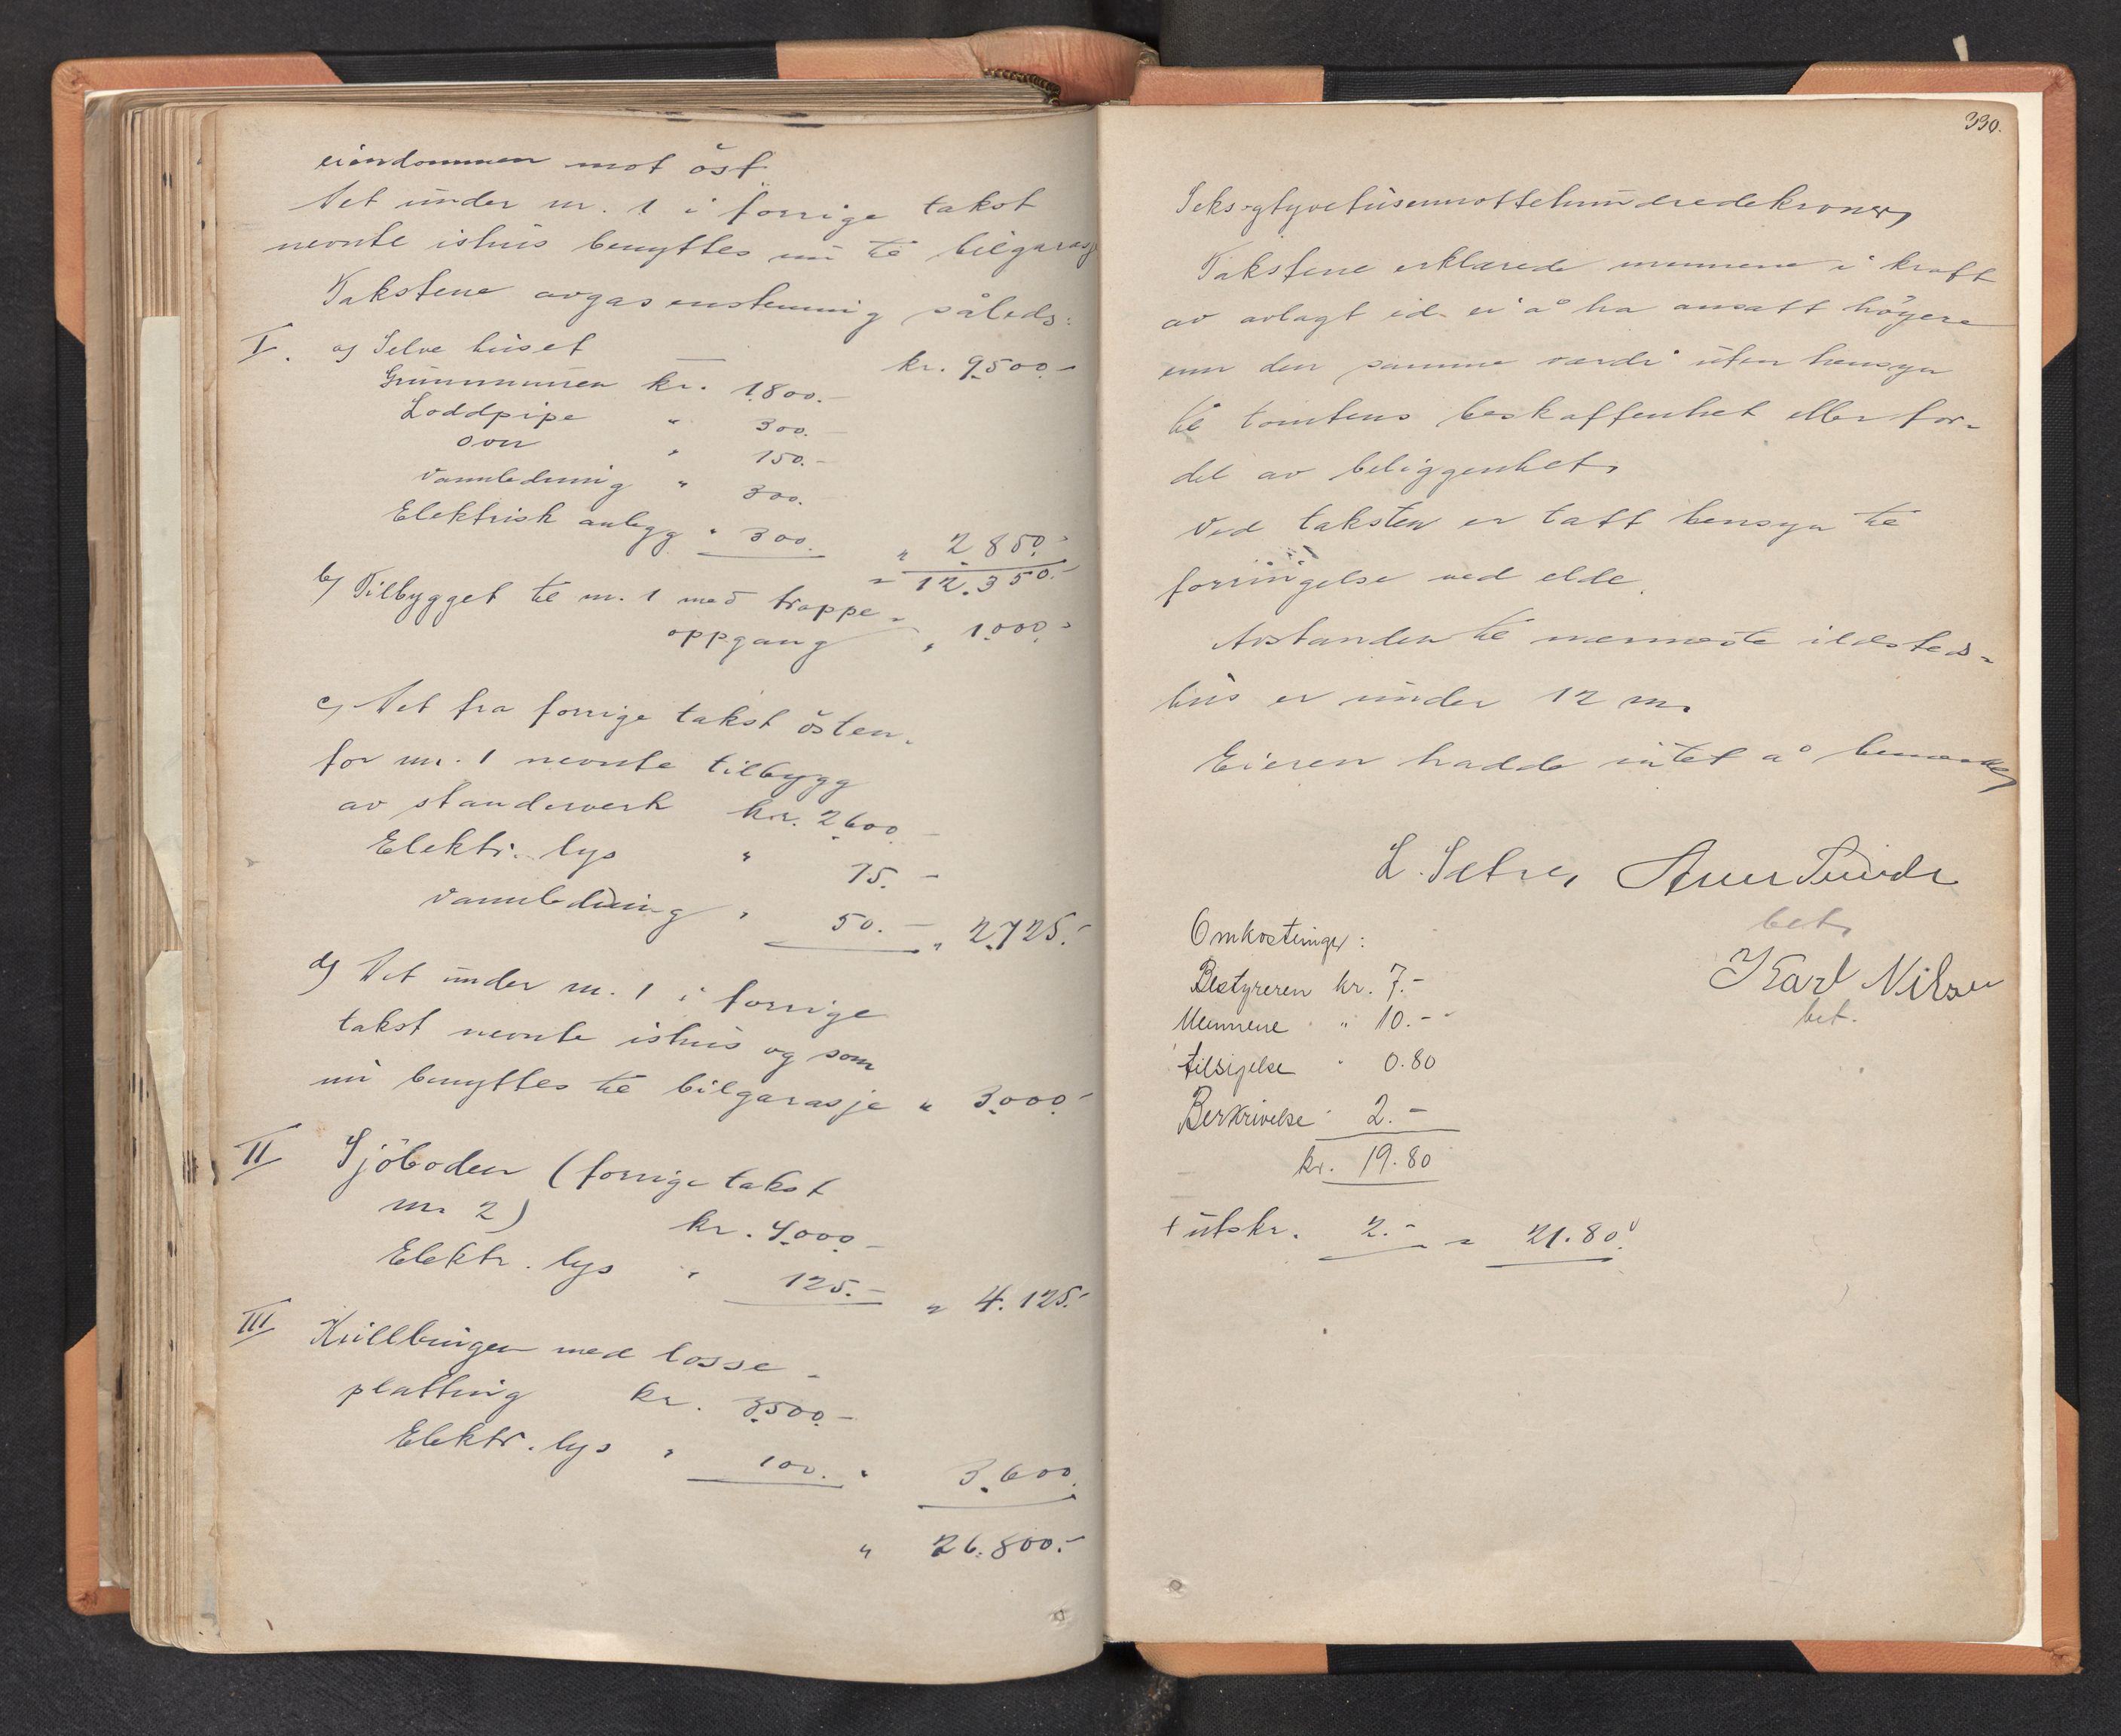 eiendommen mot öst.
Det under nr. 1 i forrige takst
nevnte ishus benyttes nu til bilgarasje
Takstene avgas enstemmig således:
I. a) Selve huset kr. 9500.-
Grunnmuren kr. 1800.-
Loddpipe " 300.-
Ovn " 150.-
Vannledning " 300.
Elektrisk anlegg " 300. " 2850.-
= 12.350.-
b) Tilbygget til nr. 1 med trappe-
oppgang " 1000.-
c) Det fra forrige takst östen-
for nr. 1 nevnte tilbygg
av standerverk kr. 2600.-
Elektr. lys " 75.-
Vannledning " 50.- " 2725.-
d) Det under nr. 1 i forrige
takst nevnte ishus og som
nu benyttes til bilgarasje " 3000.-
II Sjöboden (forrige takst
nr. 2) kr. 4000.-
Elektr. lys " 125.- " 4.125.-
III Kullbingen med losse-
platting kr. 3500.-
Elektr. lys " 100. " 3.600.
" 26.800.-
330.
Seksogtyvetusenottehundredekroner,
Takstene erklærede mennene i kraft
av avlagt ed ei å ha ansatt höyere
enn den sanne verdi uten hensyn
til tomtens beskaffenhet eller for-
del av beliggenhet.
Ved taksten er tatt hensyn til
forringelse ved elde.
Avstanden til nermeste ildsted-
hus er under 12 m.
Eieren hadde intet å bemerke,
L. Setre,
bet.
Karl Nilsen
bet.
Omkostninger:
Bestyreren kr. 7.-
Mennene " 10.-
tilsigelse " 0.80
Beskrivelse " 2.-
kr. 19.80
+ utskr. 2.- = 21.80